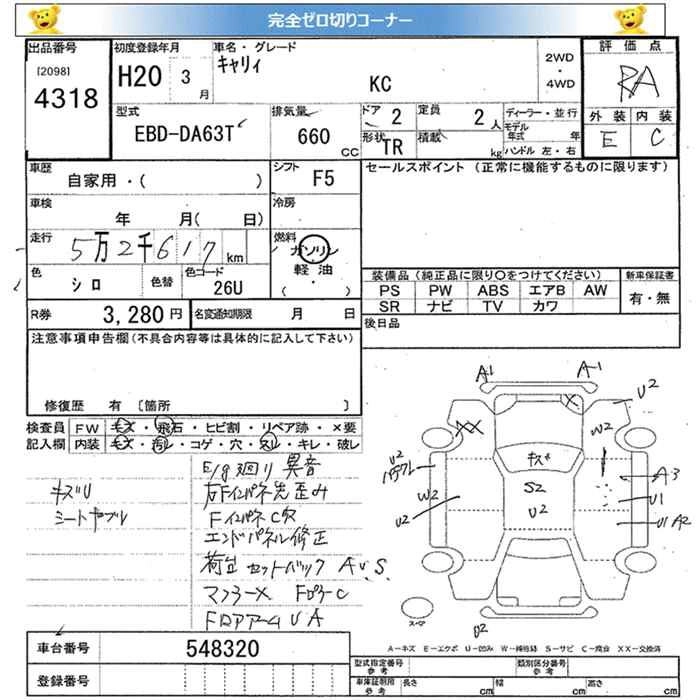 完全ゼロ切りコーナー
出品番号
[2098]
4318
初度登録年月
H20 3月
車名・グレード
キャリィ
KC
2WD
・
4WD
評価点
RA
外装 内装
E C
型式
EBD-DA63T
排気量
660 CC
ドア 2
定員 2人
形状 TR
積載 kg
ディーラー・並行
モデル年式 年
ハンドル 左・右
車歴
自家用・( )
シフト F5
セールスポイント (正常に機能するものに限ります)
車検
年 月( 日)
冷房
走行
5万2千617km
燃料
ガソリン
軽油
( ・ )
色
シロ
色替
色コード
26U
装備品 (純正品に限り〇をつけてください)
新車保証書
PS PW ABS エアB AW
SR ナビ TV カワ
有・無
R券 3,280円
名変通知期限 月 日
後日品
注意事項申告欄 (不具合内容等は具体的に記入して下さい)
修復歴 有 〔箇所 〕
検査員記入欄
FW キズ・飛石・ヒビ割・リペア跡・×要
内装 キズ・汚レ・コゲ・穴・スレ・キレ・破レ
キズU
シートヤブレ
E/g廻り異音
右Fインパネ先歪み
FインパネC穴
エンドパネル修正
荷台セットバック AU.S.
マフラーX FロワーC
FロアアームUA
A1 A1
U2
XX
X
W2
U2
キズ
S2
U2
W2
U2
A3
U1
U1 A2
U2
スペア
A-キズ E-エクボ U-凹み W-補修跡 S-サビ C-腐食 XX-交換済
車台番号 548320
登録番号
型式指定番号 参考
類別区分番号 参考
車庫証明用 参考
長さ cm 幅 cm 高さ cm